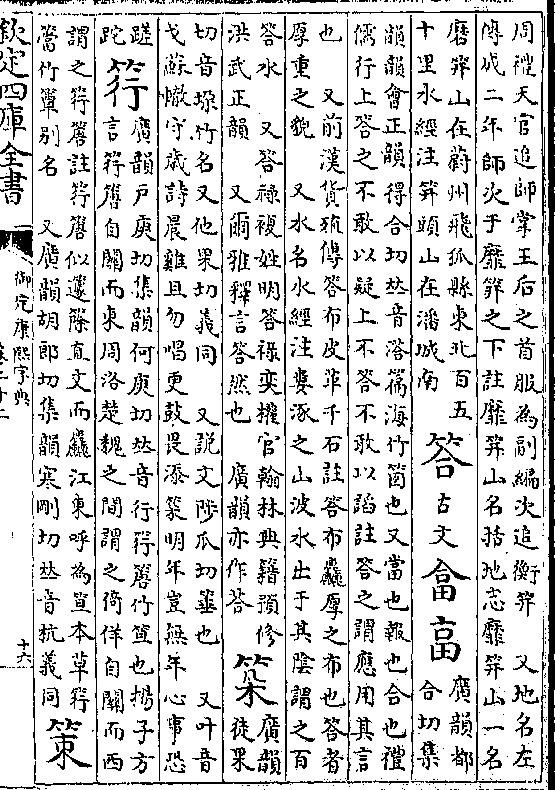 周禮天官追師掌王后之首服為副編次追衡笄　又地名左
傳成二年師次于靡笄之下註靡笄山名括地志靡笄山一名
磨笄山在蔚州飛狐縣東北百五
十里水經注笄頭山在潘城南
答古文畣畗
廣韻都
合切集
韻韻會正韻得合切𠀤音溚篇海竹䈁也又當也報也合也禮
儒行上答之不敢以疑上不答不敢以謟註答之謂應用其言
也　又前漢貨殖傳答布皮革千石註答布麤厚之布也答者
厚重之貌　又水名水經注婁涿之山波水出于其陰謂之百
答水　又答祿複姓明答祿奕權官翰林典籍預修
洪武正韻　又爾雅釋言答然也　廣韻亦作荅
廣韻
徒果
切音垜竹名又他果切義同　又說文陟瓜切箠也　又叶音
戈蘇轍守歲詩晨雞且勿唱更鼓畏添明年豈無年心事恐
蹉
跎
筕
廣韻戶庚切集韻何庚切𠀤音行筕篖竹笪也揚子方
言筕篖自關而東周洛楚魏之間謂之倚佯自關而西
謂之筕篖註筕篖似籧篨直文而麤江東呼為笪本草筕
篖竹簟別名　又廣韻胡郎切集韻寒剛切𠀤音杭義同
策
欽定四庫全書
御定康熙字典
十六